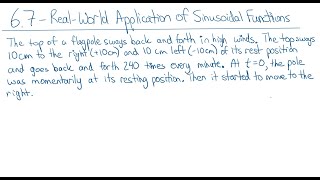 6.7 - Real-World Application of Sinusoidal Functions
The top of a flagpole sways back and forth in high winds. The top sways
10cm to the right (+10cm) and 10 cm left (-10cm) of its rest position
and goes back and forth 240 times every minute. At t=0, the pole
was momentarily at its resting position. Then it started to move to the
right.